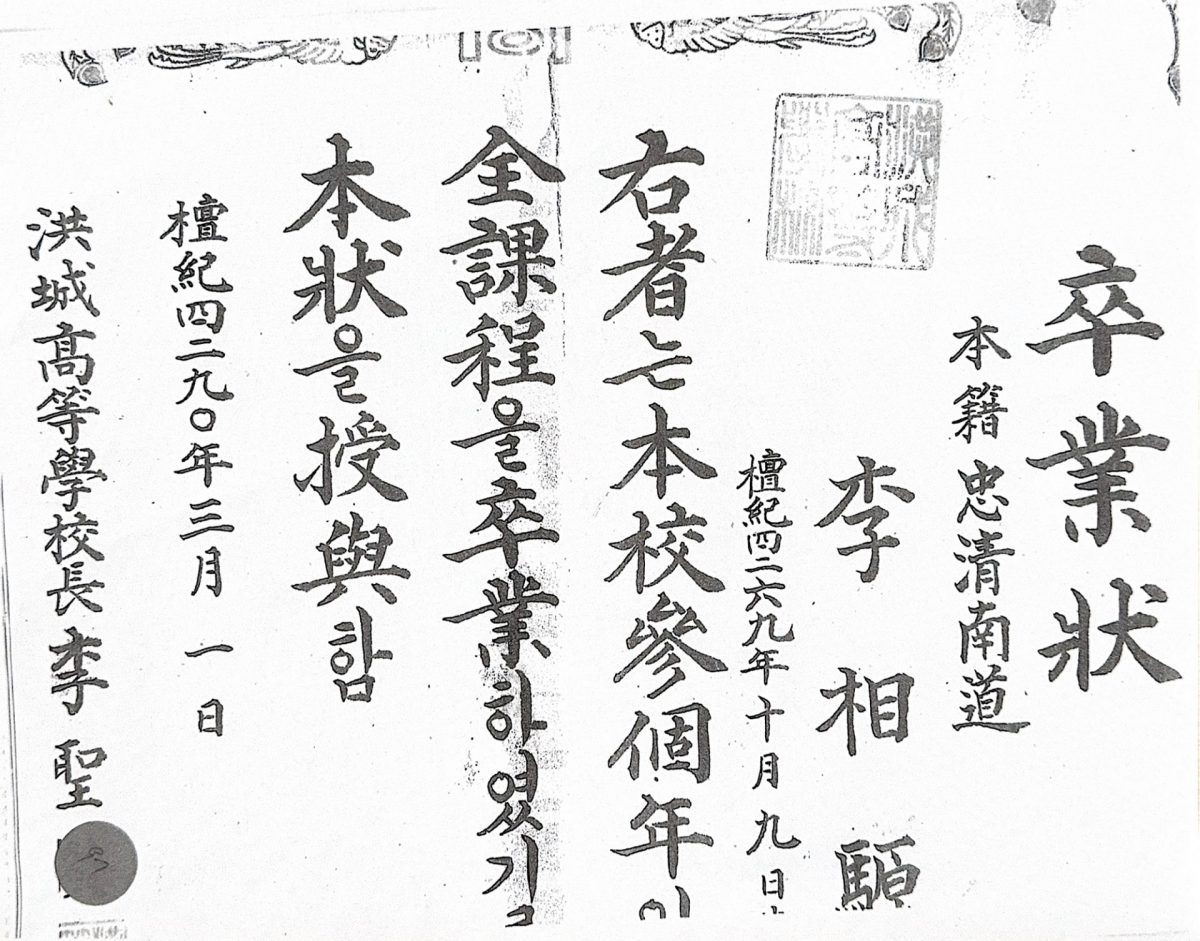 卒業狀
本籍 忠清南道
李相
檀紀四二六九年十月九日
右者는本校參個年의
全課程을卒業하였기
本狀을授與함
檀紀四二九〇年三月一日
洪城高等學校長李聖